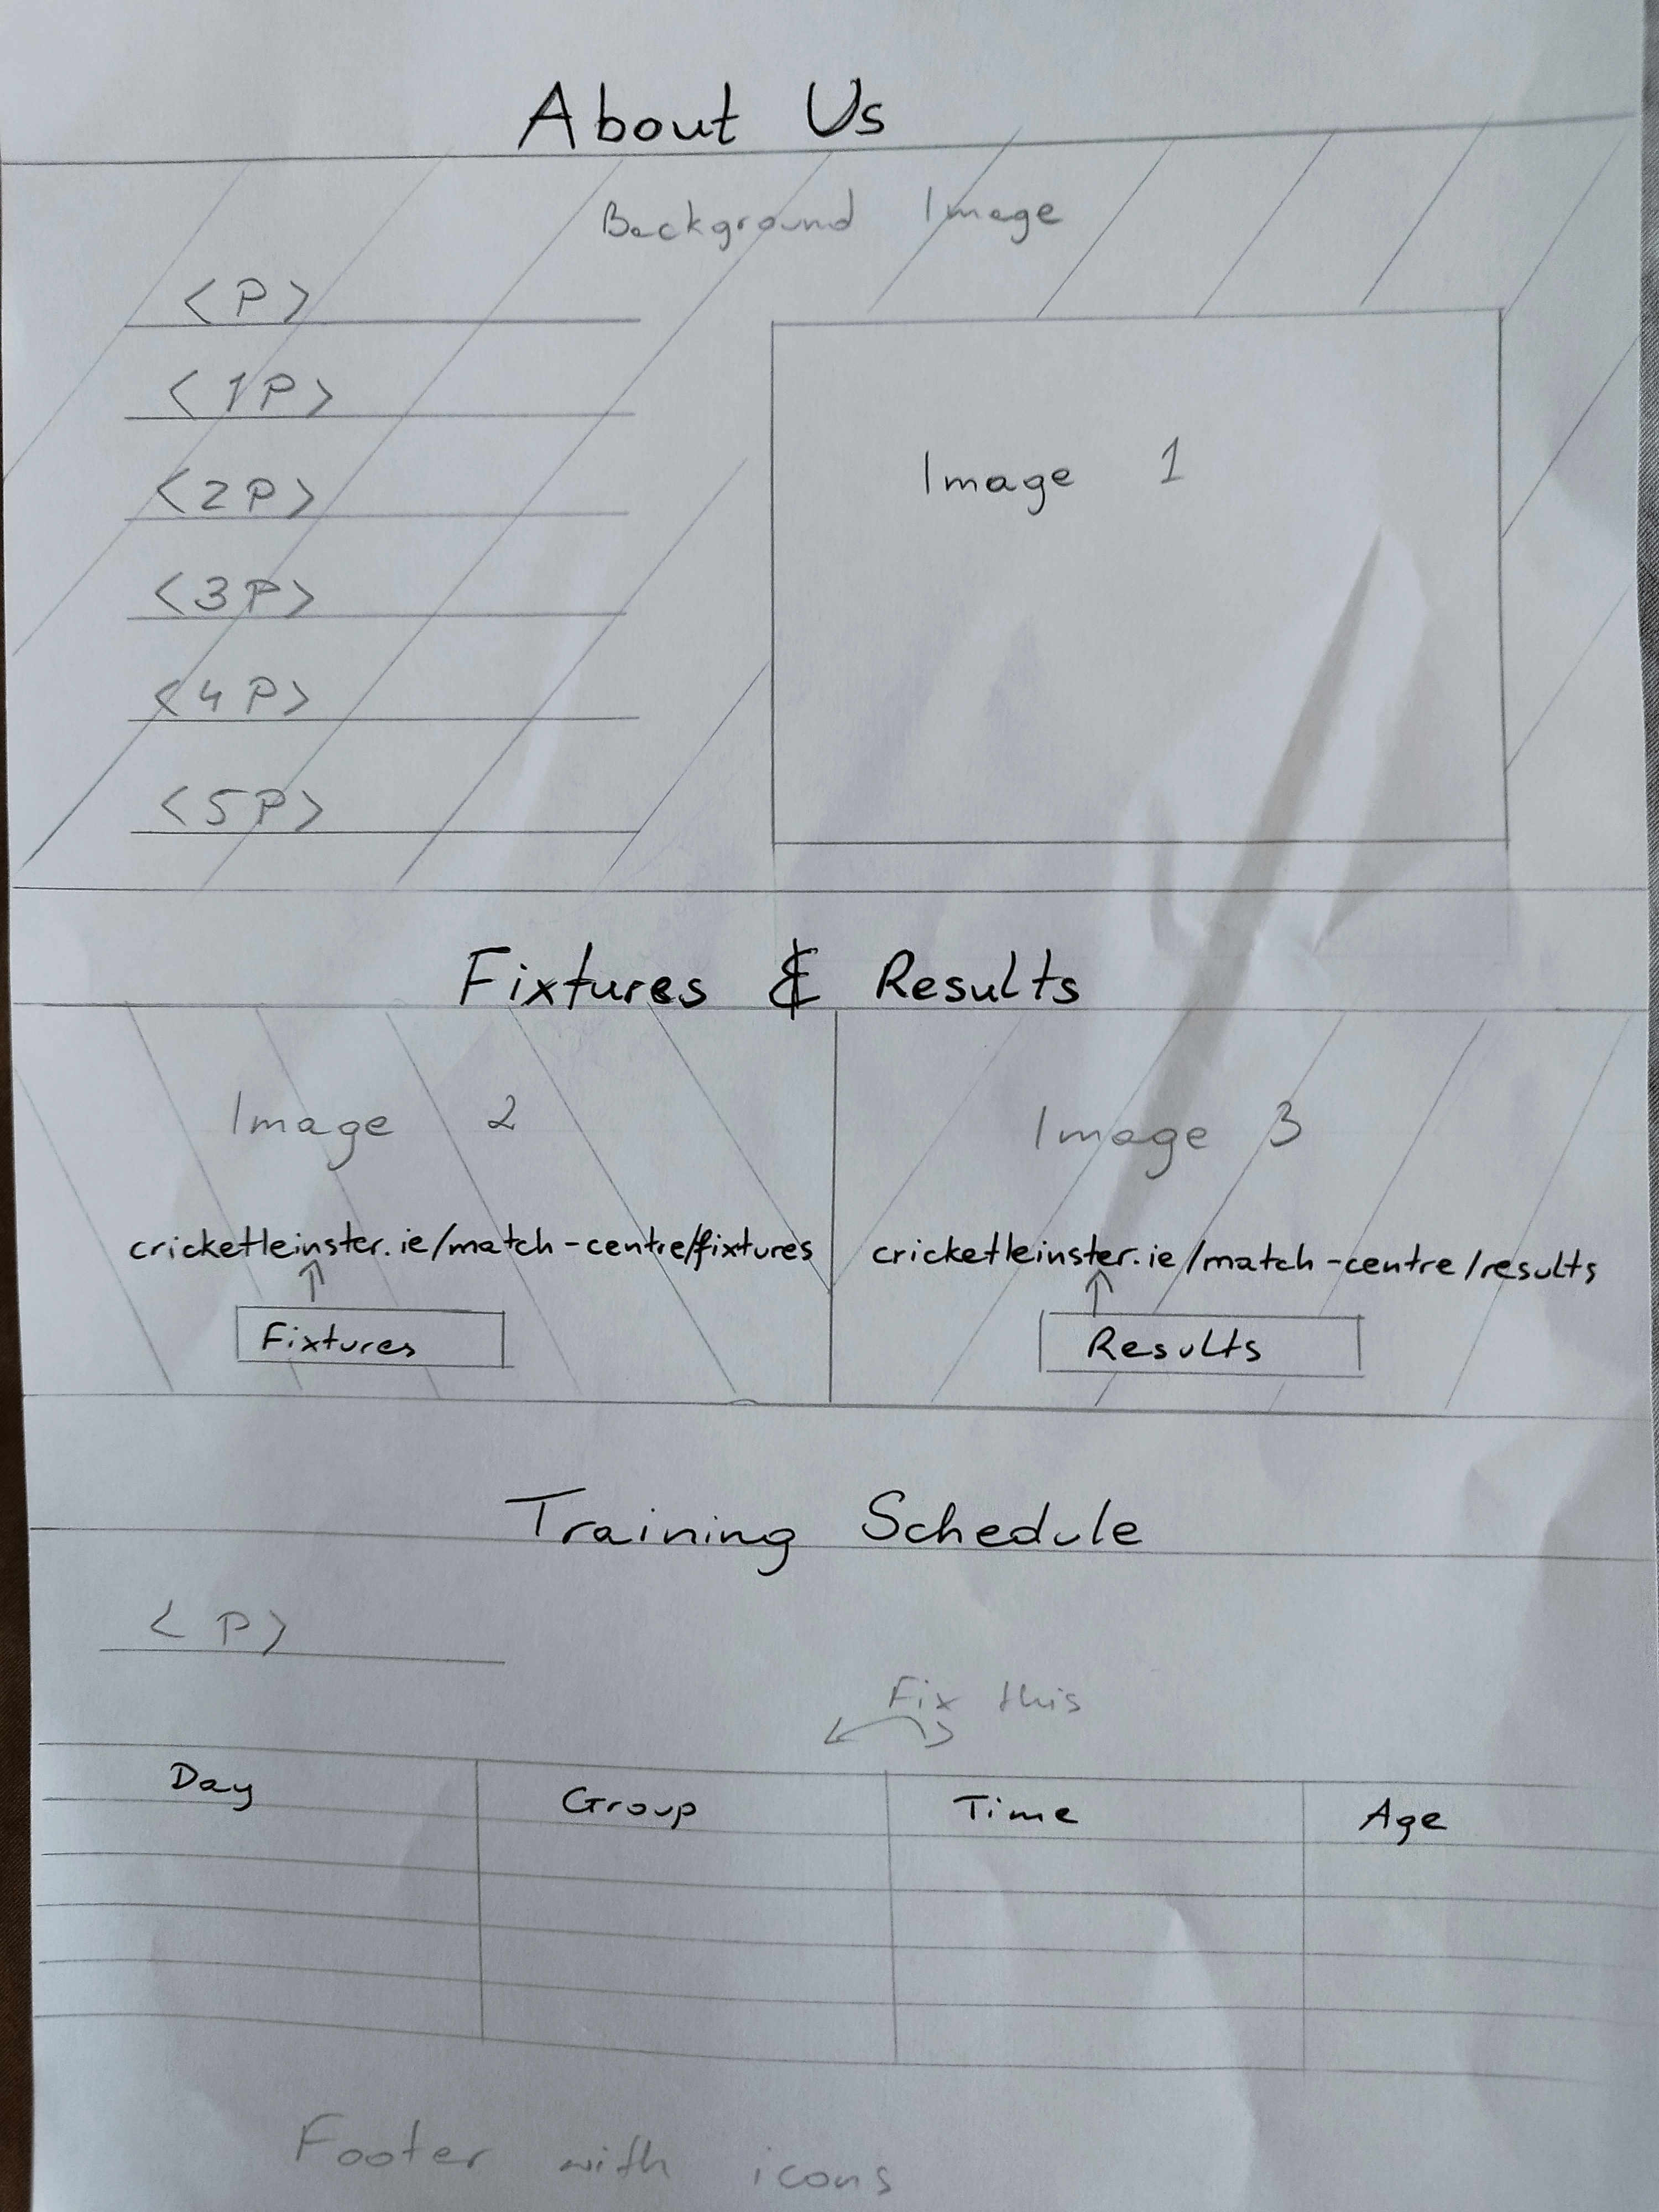 About Us
Background Image
<P>
<1P>
<2P>
<3P>
<4P>
<5P>
Image 1
Fixtures & Results
Image 2
cricketleinster.ie/match-centre/fixtures
Fixtures
Image 3
cricketleinster.ie/match-centre/results
Results
Training Schedule
<P>
Fix this
Day Group Time Age
Footer with icons